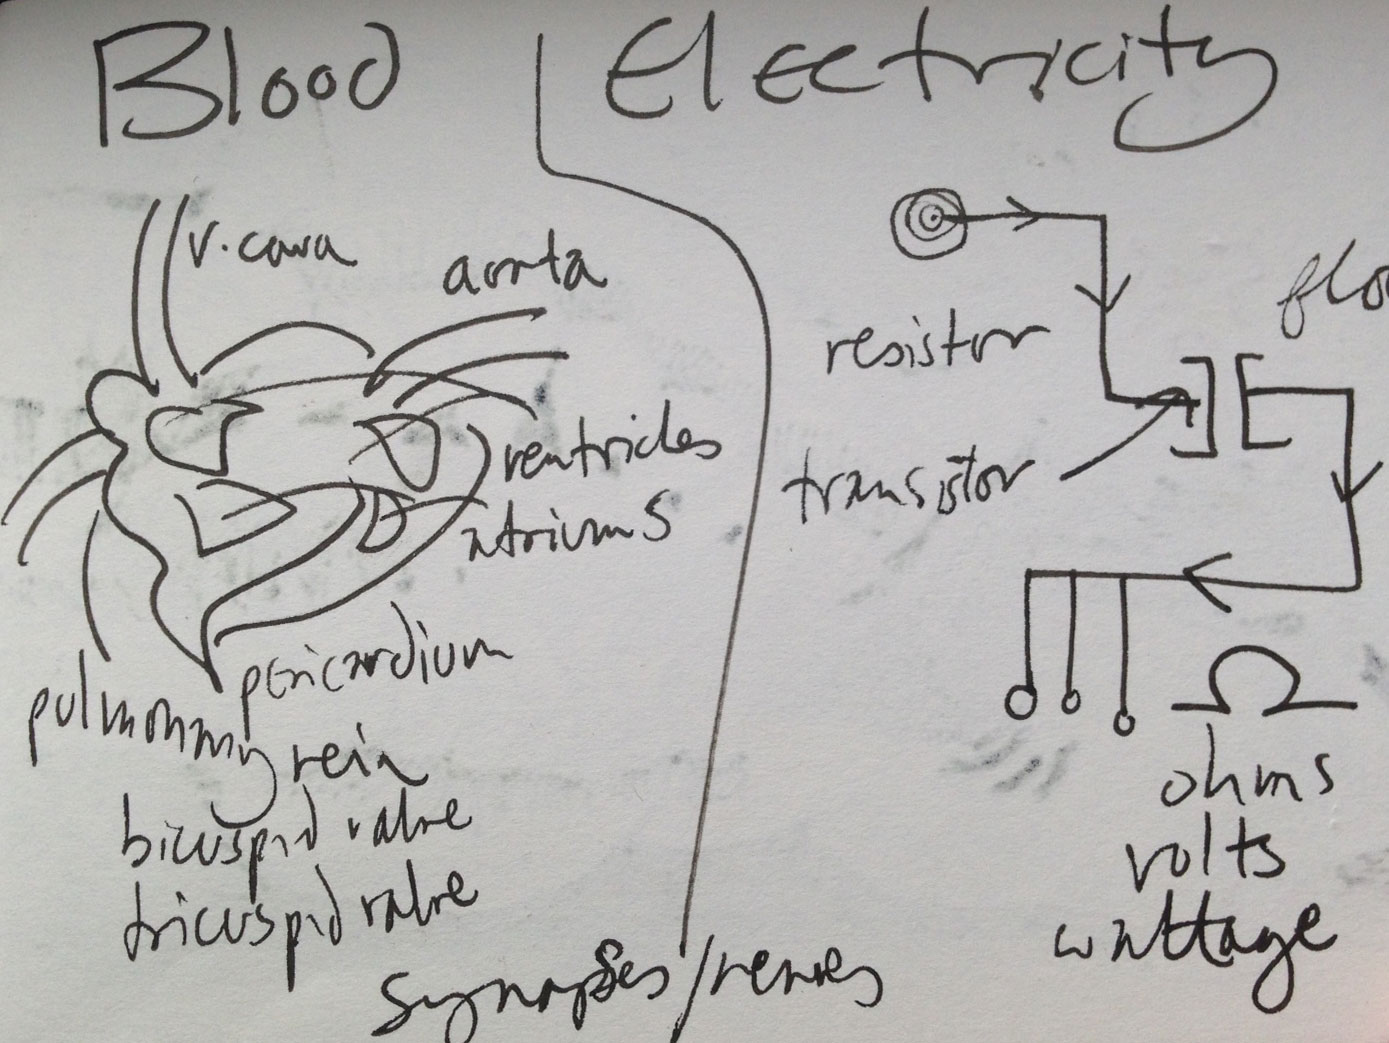 Blood
Electricity
v. cava
aorta
ventricles
atriums
pericardium
pulmonary vein
bicuspid valve
tricuspid valve
synapses/nerves
resistor
transistor
flo
Ω
ohms
volts
wattage